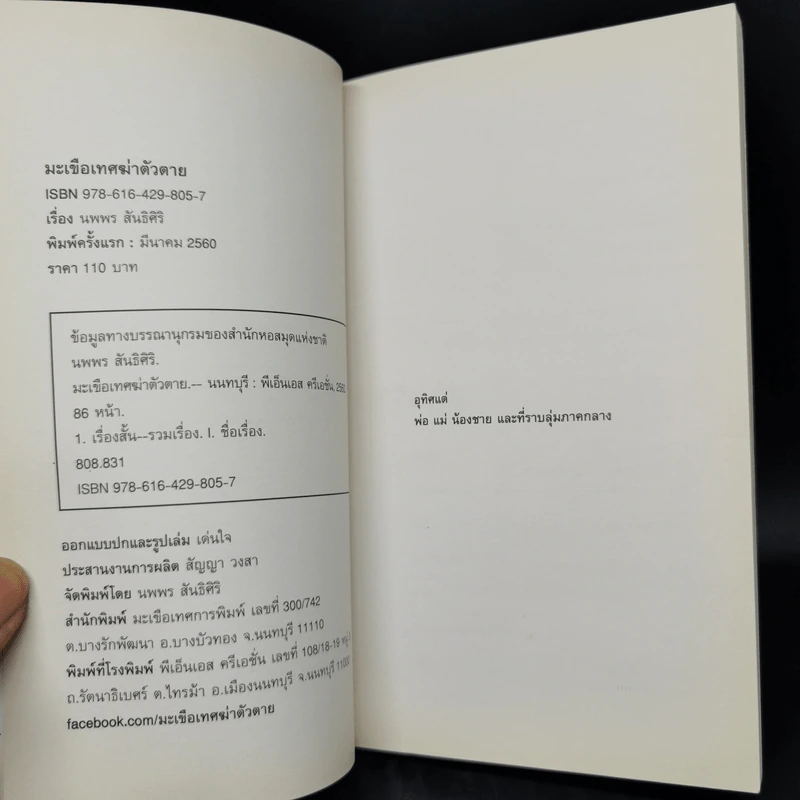 มะเขือเทศฆ่าตัวตาย
ISBN 978-616-429-805-7
เรื่อง นพพร สันธิศิริ
พิมพ์ครั้งแรก : มีนาคม 2560
ราคา 110 บาท
ข้อมูลทางบรรณานุกรมของสำนักหอสมุดแห่งชาติ
นพพร สันธิศิริ.
มะเขือเทศฆ่าตัวตาย.-- นนทบุรี : พีเอ็นเอส ครีเอชั่น, 2560
86 หน้า.
1. เรื่องสั้น--รวมเรื่อง. I. ชื่อเรื่อง.
808.831
ISBN 978-616-429-805-7
ออกแบบปกและรูปเล่ม เด่นใจ
ประสานงานการผลิต สัญญา วงสา
จัดพิมพ์โดย นพพร สันธิศิริ
สำนักพิมพ์ มะเขือเทศการพิมพ์ เลขที่ 300/742
ต.บางรักพัฒนา อ.บางบัวทอง จ.นนทบุรี 11110
พิมพ์ที่โรงพิมพ์ พีเอ็นเอส ครีเอชั่น เลขที่ 108/18-19
ถ.รัตนาธิเบศร์ ต.ไทรม้า อ.เมืองนนทบุรี จ.นนทบุรี 11000
facebook.com/มะเขือเทศฆ่าตัวตาย
อุทิศแด่
พ่อ แม่ น้องชาย และที่ราบลุ่มภาคกลาง